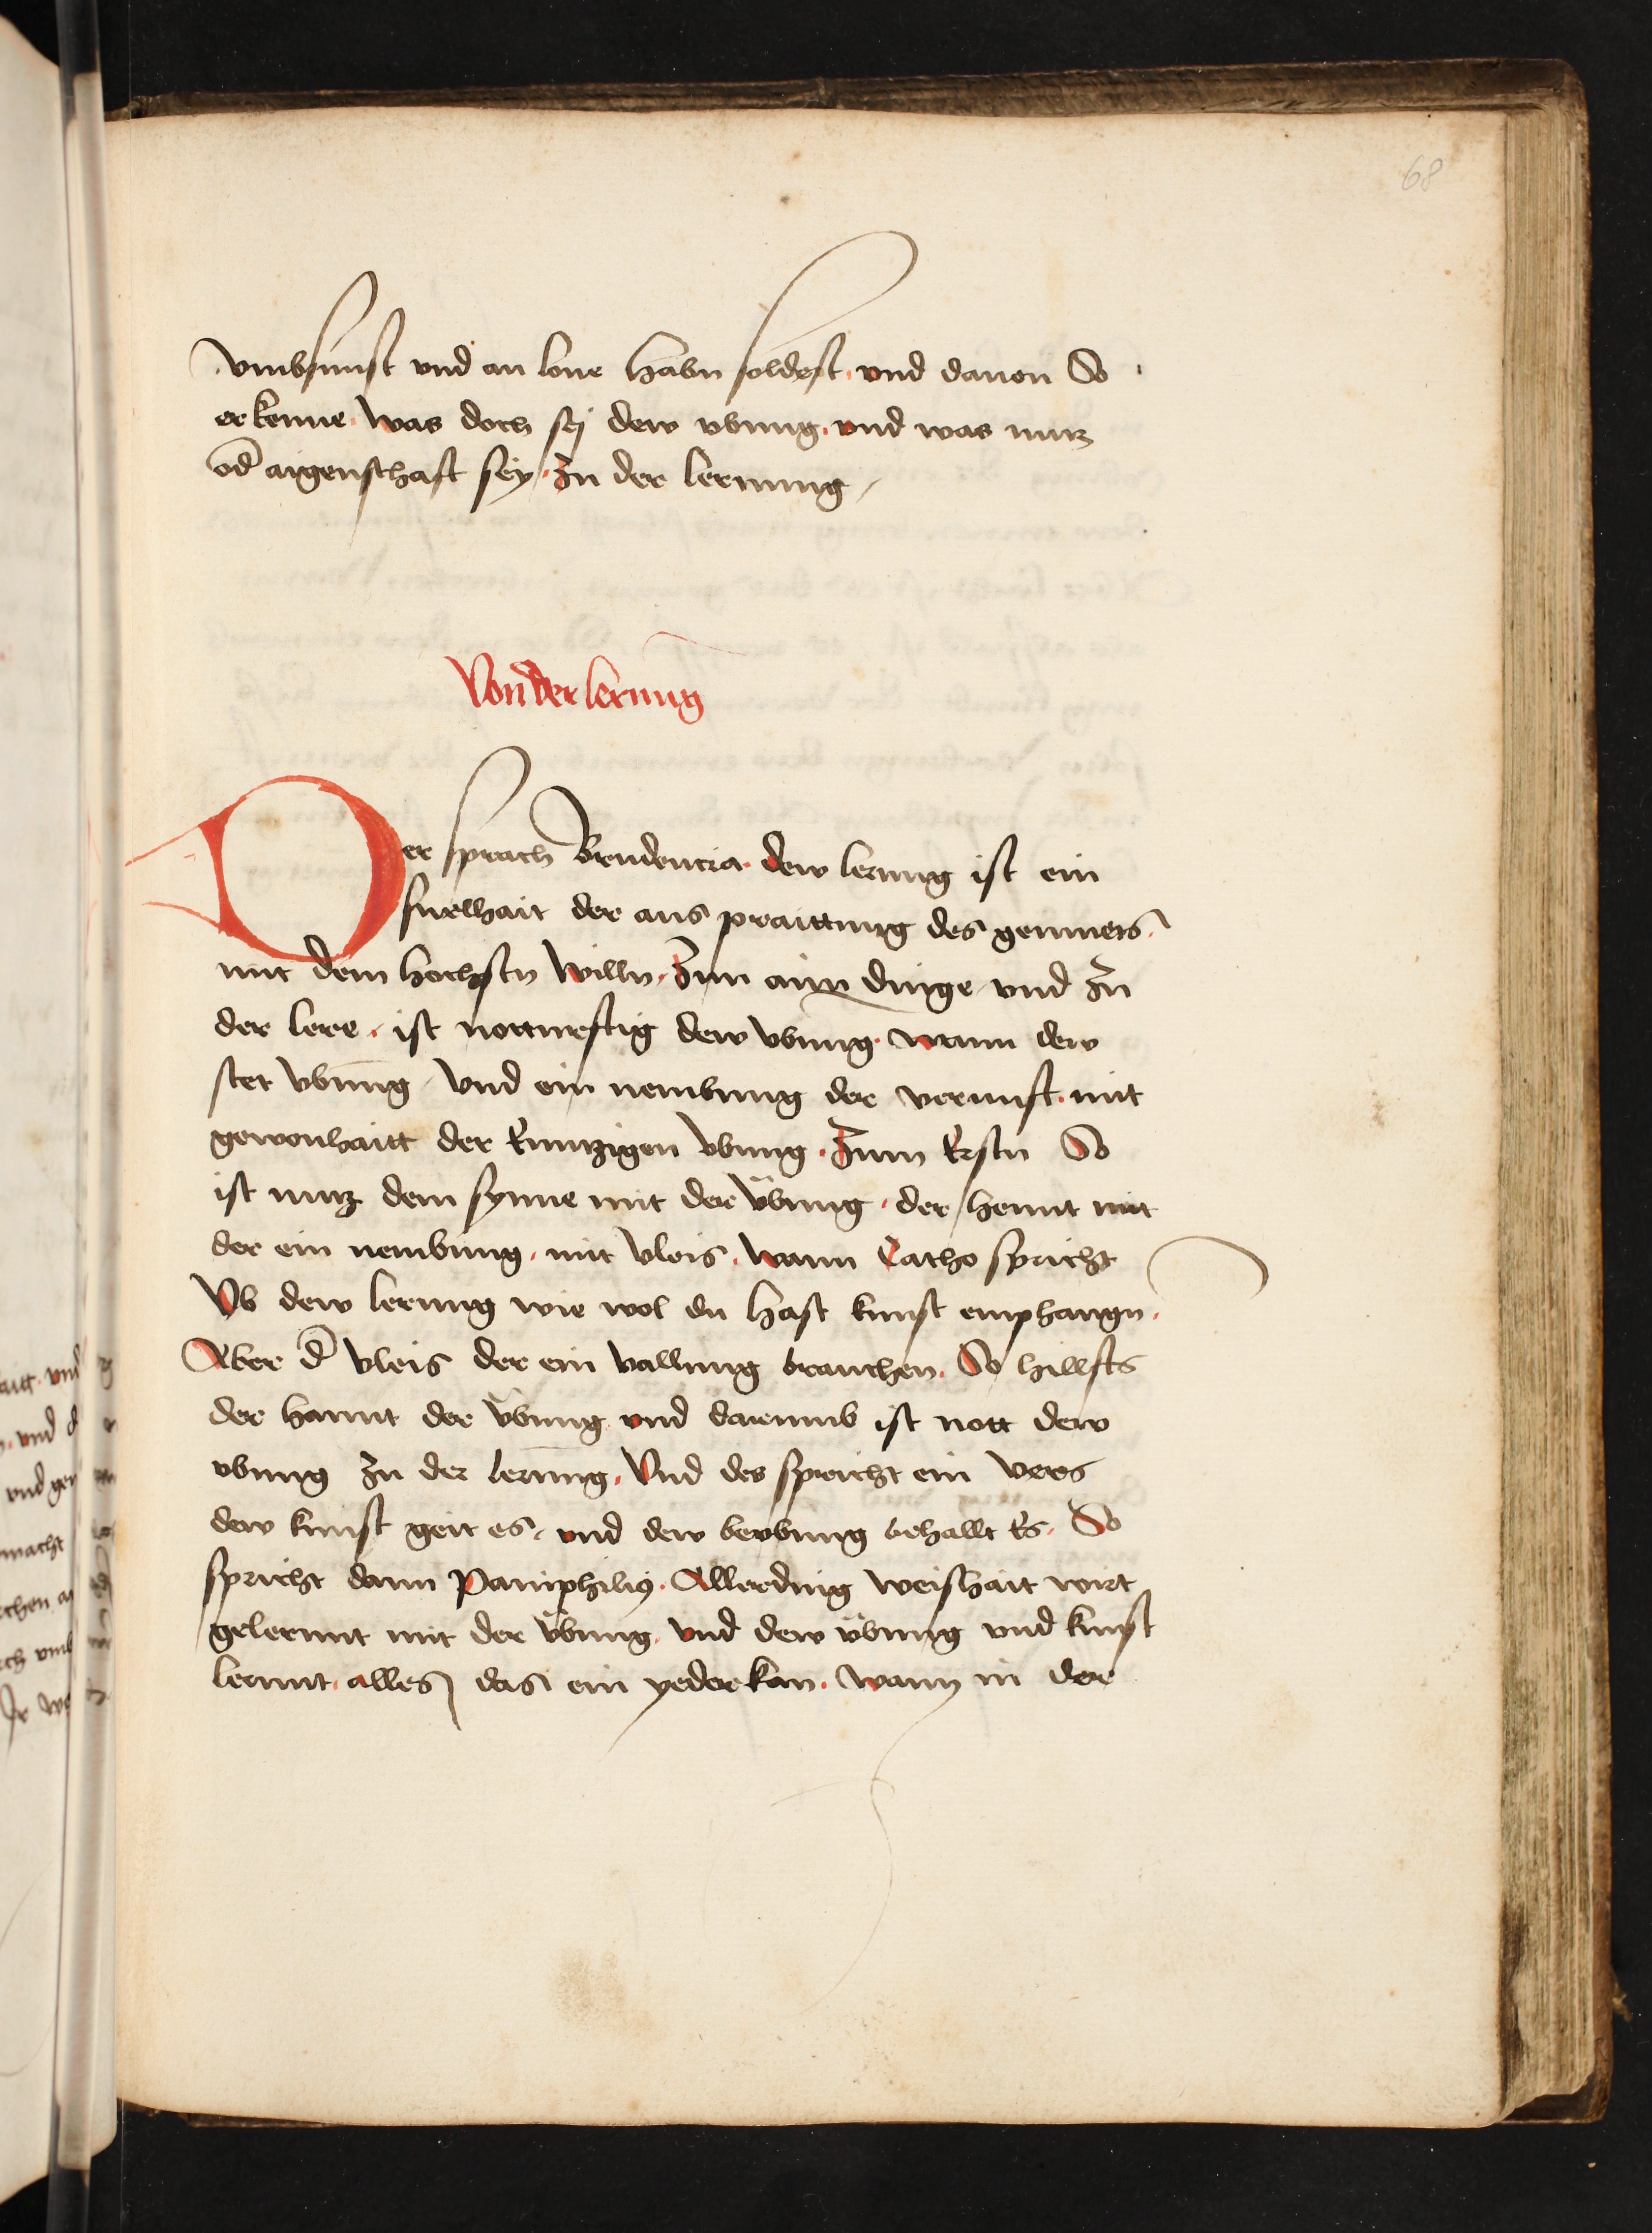 68
vmbsunst vnd an lone habn soldest, vnd dauon So
erkenne was doch sej dew vbung vnd was nutz
od aigenschaft sey Zu der lernung
Von der lernung
Der sprach Brudencia dew lernng ist ein
snelhait der aus praittung des gemuets
mit dem hochstn willn Zum aim dinge vnd Zu
der lere ist notturftig dew vbung wann dew
stet vbung Vnd ein nembung der vernunft mit
gewonhaitt der kuntzigen vbung Zum Erstn So
ist nutz dem synne mit der übung der hennt mit
der ein nembung mit vleis wann Catho spricht
Ob dew lernung wie wol du hast kunst emphangn
Aber d vleis der ein vallung brauchen So hillfts
der hannt der übung vnd darumb ist nott dew
vbung Zu der lernung Vnd des spricht ein vers
dew kunst geit es vnd dew bevbung behallt Es So
spricht dann Pamphilius Allerding weishait wirt
gelernnt mit der übung vnd dew übung vnd kunst
lernnt alles das ein yeder kan wann in der